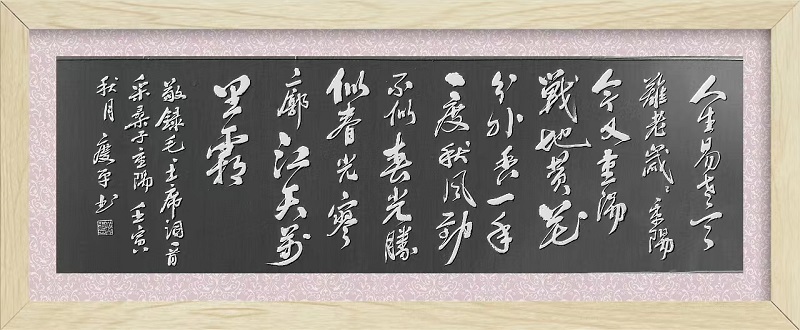 人生易老天
難老歲々重陽
今又重陽
戰地黄花
分外香一年
一度秋风劲
不似春光勝
似春光寥
廓江天萬
里霜
敬録毛主席词一首
采桑子重陽 壬寅
秋月 平书